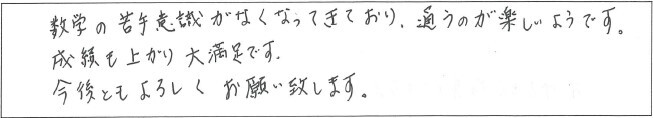 数学の苦手意識がなくなってきており、通うのが楽しいようです。
成績も上がり大満足です。
今後ともよろしくお願い致します。